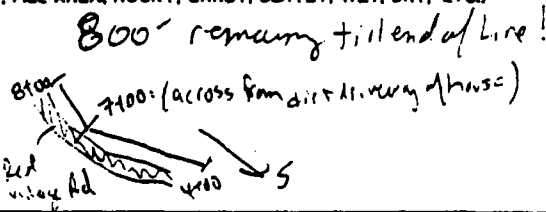 800' remaining till end of Line!
8+00
7+00: (across from dirt driveway of house)
Red
Village Rd
4+00
S